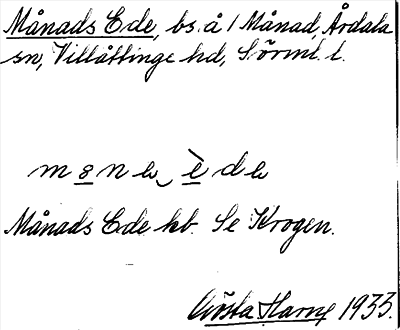 Månads Ede, bs. å 1 Månad, Årdala
sn, Villåttinge hd, Sörml. l.
mɜnɷ‿ èdɷ
Månads Ede kb. Se Krogen.
Gösta Harng 1933.